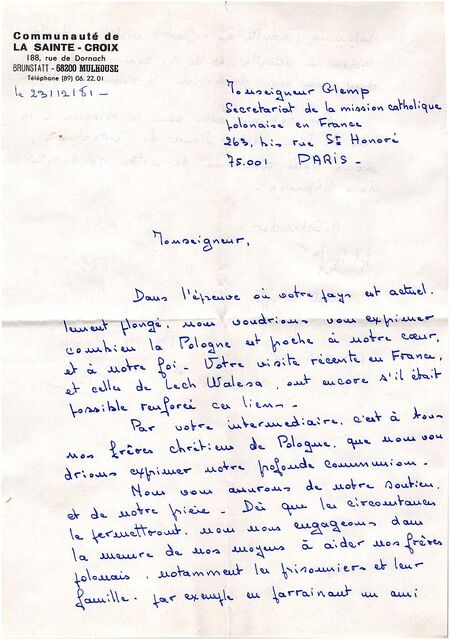 Communauté de
LA SAINTE - CROIX
188, rue de Dornach
BRUNSTATT - 68200 MULHOUSE
Téléphone (89) 06. 22. 01
le 23/12/81 -
Monseigneur Glemp
Secrétariat de la mission catholique
polonaise en France
263, bis rue St Honoré
75.001 PARIS -
Monseigneur,
Dans l'épreuve où votre pays est actuel.
lement plongé, nous voudrions vous exprimer
combien la Pologne est proche à notre cœur,
et à notre foi - Votre visite récente en France,
et celles de Lech Walesa, ont encore s'il était
possible renforcé ces liens -
Par votre intermédiaire, c'est à tous
nos frères chrétiens de Pologne, que nous vou
drions exprimer notre profonde communion -
Nous vous assurons de notre soutien,
et de notre prière - Dès que les circonstances
le permettront, nous nous engageons dans
la mesure de nos moyens à aider nos frères
polonais, notamment les prisonniers et leur
famille. par exemple en parrainant un ami